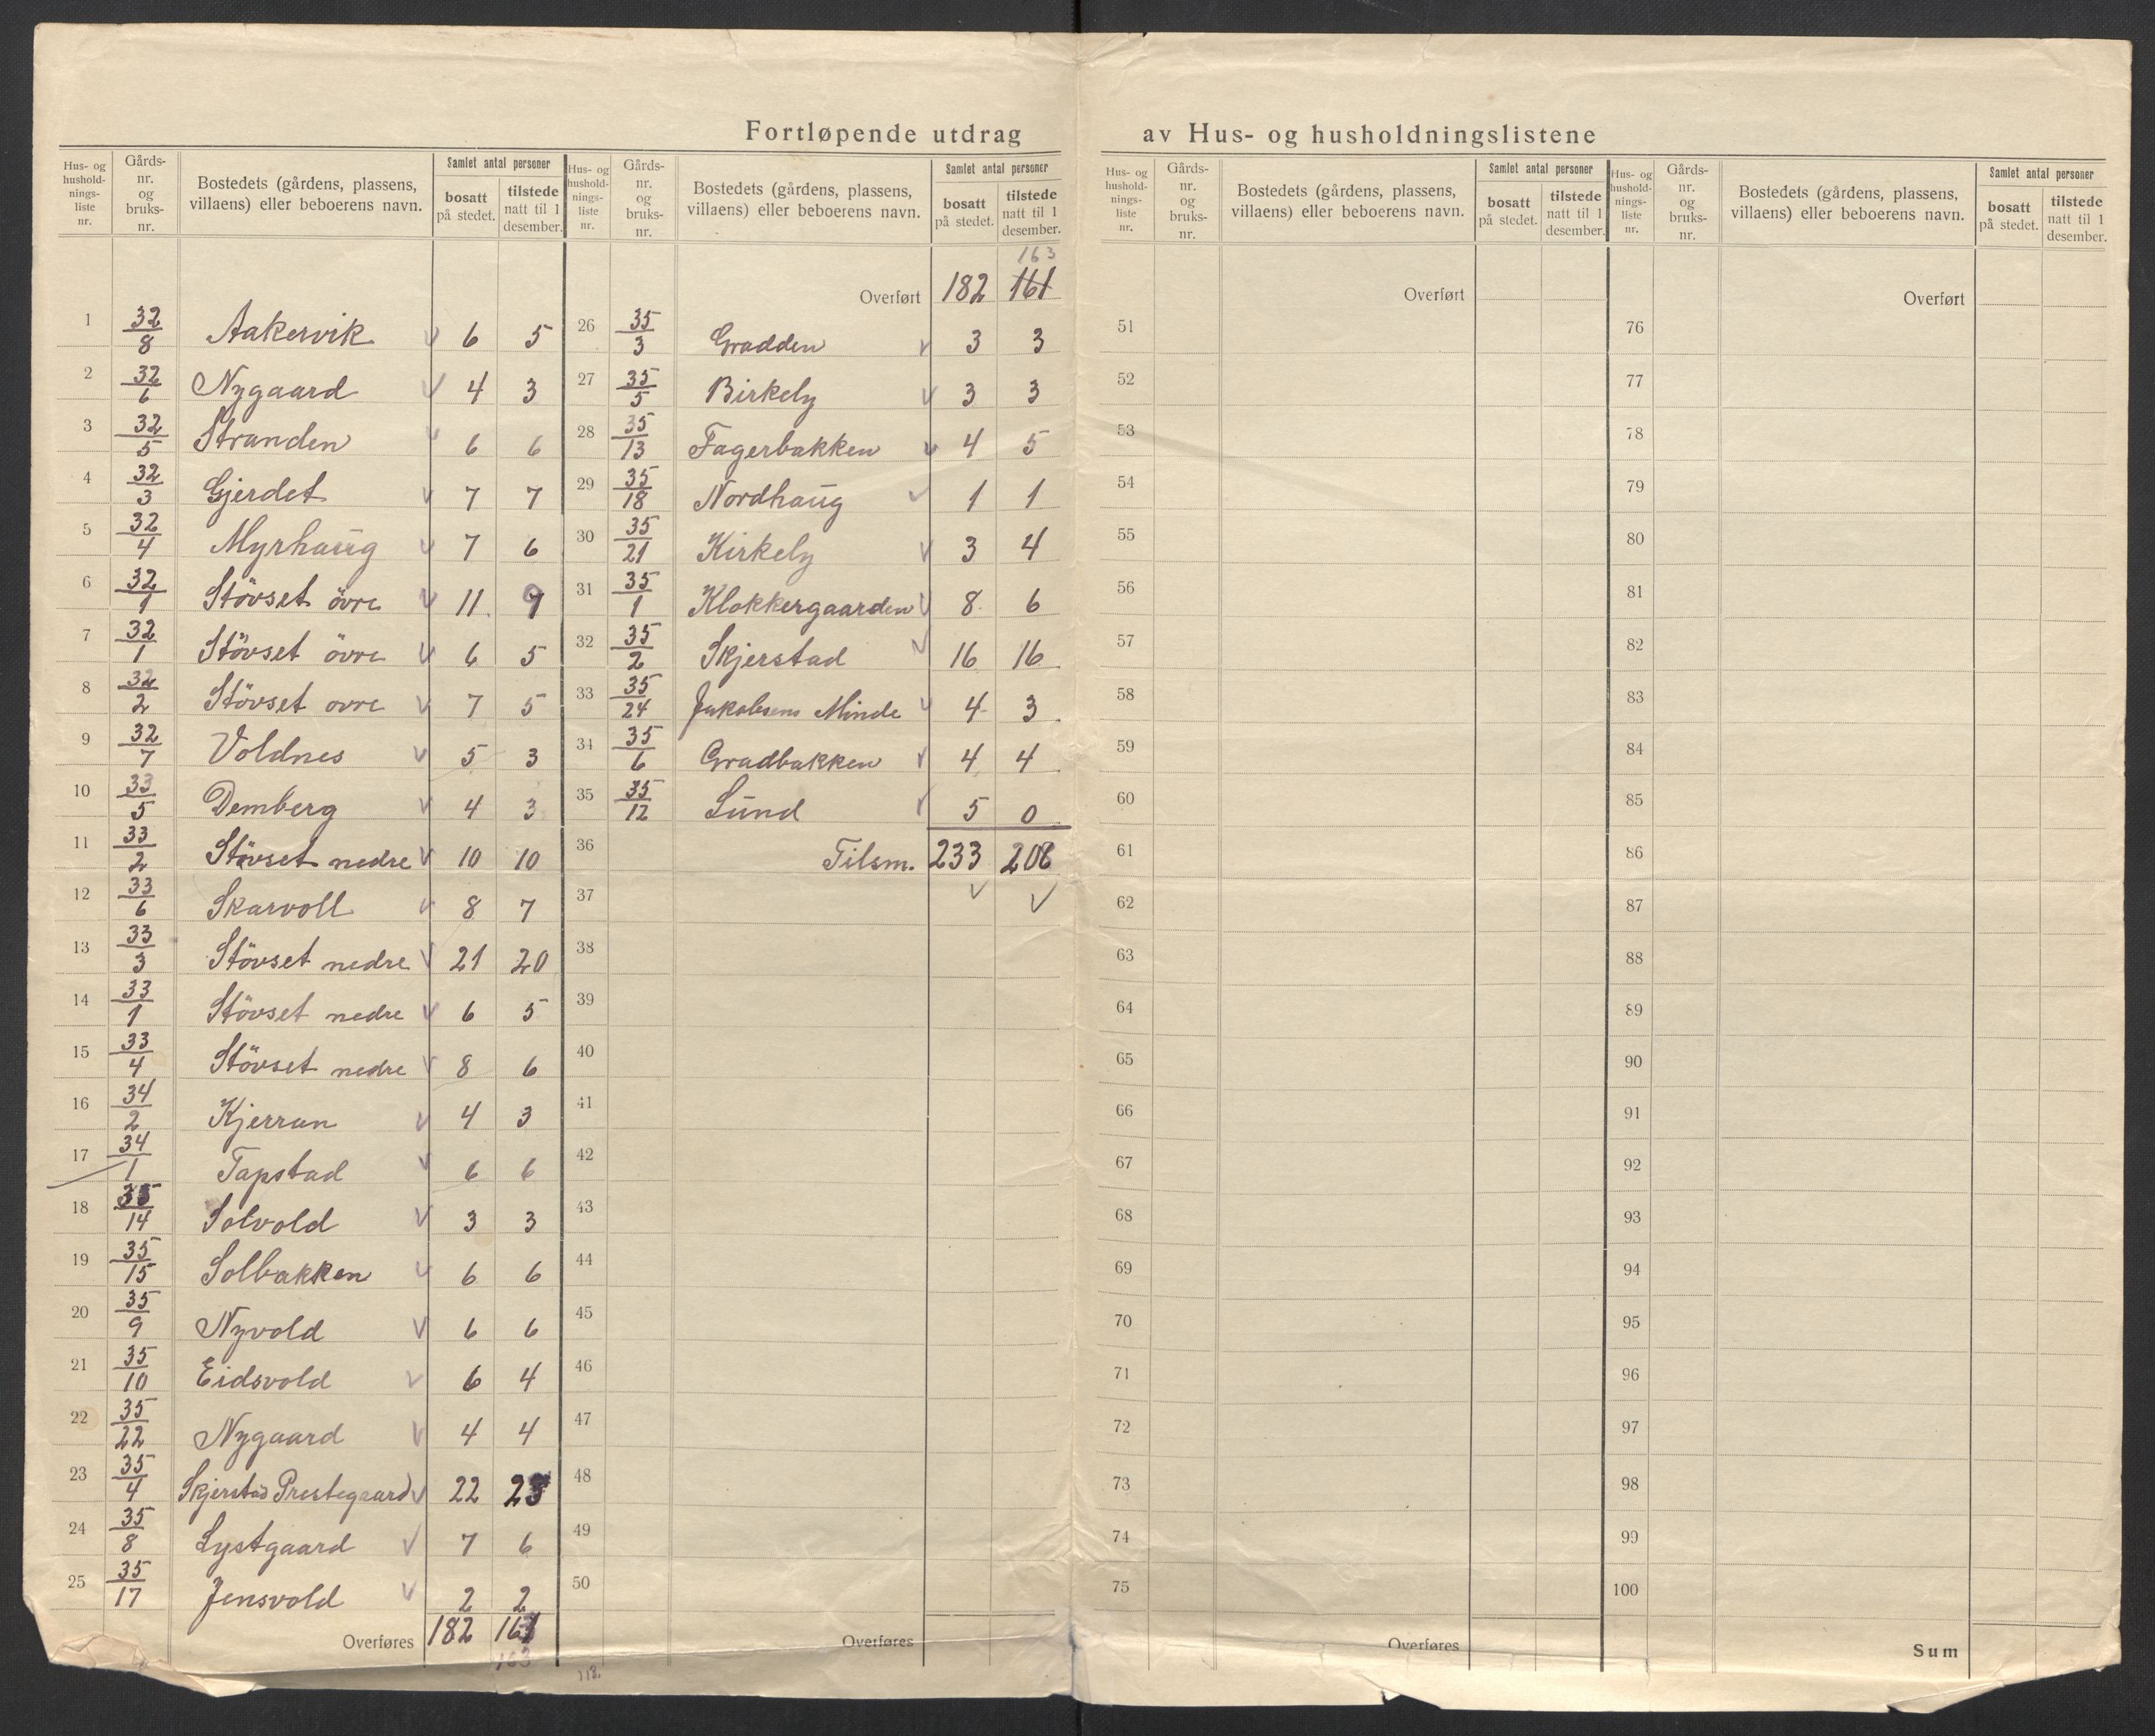 Fortløpende utdrag av Hus- og husholdningslistene
Hus- og husholdnings-liste nr. | Gårds-nr. og bruks-nr. | Bostedets (gårdens, plassens, villaens) eller beboerens navn. | Samlet antal personer | bosatt på stedet. | tilstede natt til 1 desember.
1 32/8 Aakervik 6 5
2 32/6 Nygaard 4 3
3 32/5 Stranden 6 6
4 32/3 Gjerdet 7 7
5 32/4 Myrhaug 7 6
6 32/1 Stövset övre 11
7 32/1 Stövset övre 6 5
8 32/2 Stövset ovre 7 5
9 32/7 Voldnes 5 3
10 33/5 Demberg 4 3
11 33/2 Stövset nedre 10 10
12 33/6 Skarvoll 8 7
13 33/3 Stövset nedre 21 20
14 33/1 Stövset nedre 6 5
15 33/4 Stövset nedre 8 6
16 34/2 Kjerran 4 3
17 34/1 Tapstad 6 6
18 35/14 Solvold 3 3
19 35/15 Solbakken 6 6
20 35/9 Nyvold 6 6
21 35/10 Eidsvold 6 4
22 35/22 Nygaard 4 4
23 35/4 Skjerstad Prestegaard 22 23
24 35/8 Lystgaard 7 6
25 35/17 Jensvold 2 2
Overføres 182 161
163
Hus- og husholdnings-liste nr. | Gårds-nr. og bruks-nr. | Bostedets (gårdens, plassens, villaens) eller beboerens navn. | Samlet antal personer | bosatt på stedet. | tilstede natt til 1 desember.
163
Overført 182 161
26 35/3 Gradden 3 3
27 35/5 Birkely 3 3
28 35/13 Fagerbakken 4 5
29 35/18 Nordhaug 1 1
30 35/21 Kirkely 3 4
31 35/1 Klokkergaarden 8 6
32 35/2 Skjerstad 16 16
33 35/24 Jakobsens Minde 4 3
34 35/6 Gradbakken 4 4
35 35/12 Lund 5 0
36 Tilsm. 233 208
37
38
39
40
41
42
43
44
45
46
47
48
49
50
Overføres
Hus- og husholdnings-liste nr. | Gårds-nr. og bruks-nr. | Bostedets (gårdens, plassens, villaens) eller beboerens navn. | Samlet antal personer | bosatt på stedet. | tilstede natt til 1 desember.
Overført
51
52
53
54
55
56
57
58
59
60
61
62
63
64
65
66
67
68
69
70
71
72
73
74
75
Overføres
Hus- og husholdnings-liste nr. | Gårds-nr. og bruks-nr. | Bostedets (gårdens, plassens, villaens) eller beboerens navn. | Samlet antal personer | bosatt på stedet. | tilstede natt til 1 desember.
Overført
76
77
78
79
80
81
82
83
84
85
86
87
88
89
90
91
92
93
94
95
96
97
98
99
100
Sum